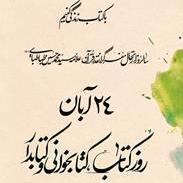 با کتاب زندگی کنیم
سالروز ارتحال مفسر گرانقدر قرآن علامه سید محمد حسین طباطبایی
۲۴ آبان
روز کتاب، کتابخوانی و کتابدار